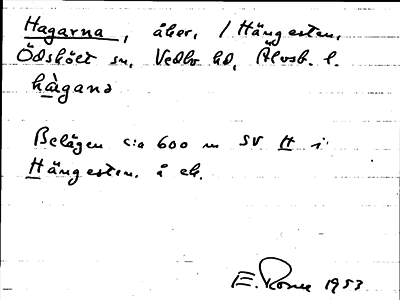 Hagarna, åker, / Hängesten,
Ödskölt sn, Vedbo hd, Älvsb. l.
hà̄gana
Belägen c:a 600 m SV H i
Hängesten. å ek.
E. Rome 1953